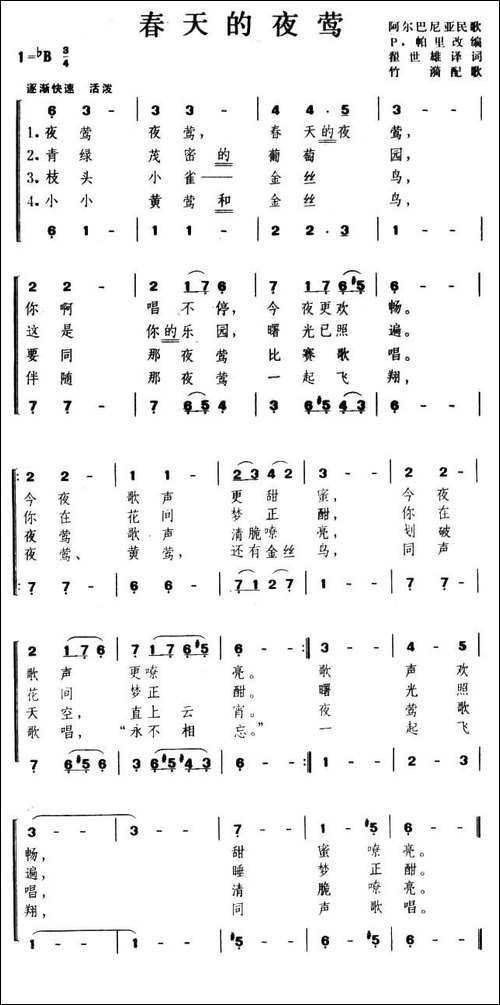 春天的夜莺
阿尔巴尼亚民歌
P·帕里改编
翟世雄译词
竹漪配歌
1=♭B 3/4
逐渐快速 活泼
6 3 - | 3 3 - | 4 4 · 5 | 3 - - |
1.夜莺 夜莺, 春天的夜莺,
2.青绿 茂密的 葡萄园,
3.枝头 小雀—— 金丝鸟,
4.小小 黄莺和 金丝鸟,
6 1 - | 1 1 - | 2 2 · 3 | 1 - - |
2 2 - | 2 1 7 6 | 7 1 7 6 ♯5 | 6 - - |
你啊 唱不停, 今夜更欢畅。
这是 你的乐园, 曙光已照遍。
要同 那夜莺 比赛歌唱。
伴随 那夜莺 一起飞翔,
7 7 - | 7 6 5 4 | 3 6 ♯5 4 3 | 6 - - |
2 2 - | 1 1 - | 2 3 4 2 | 3 - - | 2 2 - |
今夜 歌声 更甜蜜, 今夜
你在 花间 梦正酣, 你在
夜莺 歌声 清脆嘹亮, 划破
夜莺、 黄莺, 还有金丝鸟, 同声
7 7 - | 6 6 - | 7 1 2 7 | 1 - - | 7 7 - |
2 1 7 6 | 7 1 7 6 ♯5 | 6 - - :| 3 - - | 4 - 5 |
歌声 更嘹亮。 歌声欢
花间 梦正酣。 曙光照
天空, 直上云宵。 夜莺歌
歌唱, “永不相忘。” 一起飞
7 6 ♯5 6 | 3 6 ♯5 4 3 | 6 - - :| 1 - - | 2 - 3 |
3 - - | 3 - - | 7 - - | 1 - ♯5 | 6 - - |
畅, 甜蜜嘹亮。
遍, 睡梦正酣。
唱, 清脆嘹亮。
翔, 同声歌唱。
1 - - | 1 - - | ♯5 - - | 6 - ♯5 | 6 - - |